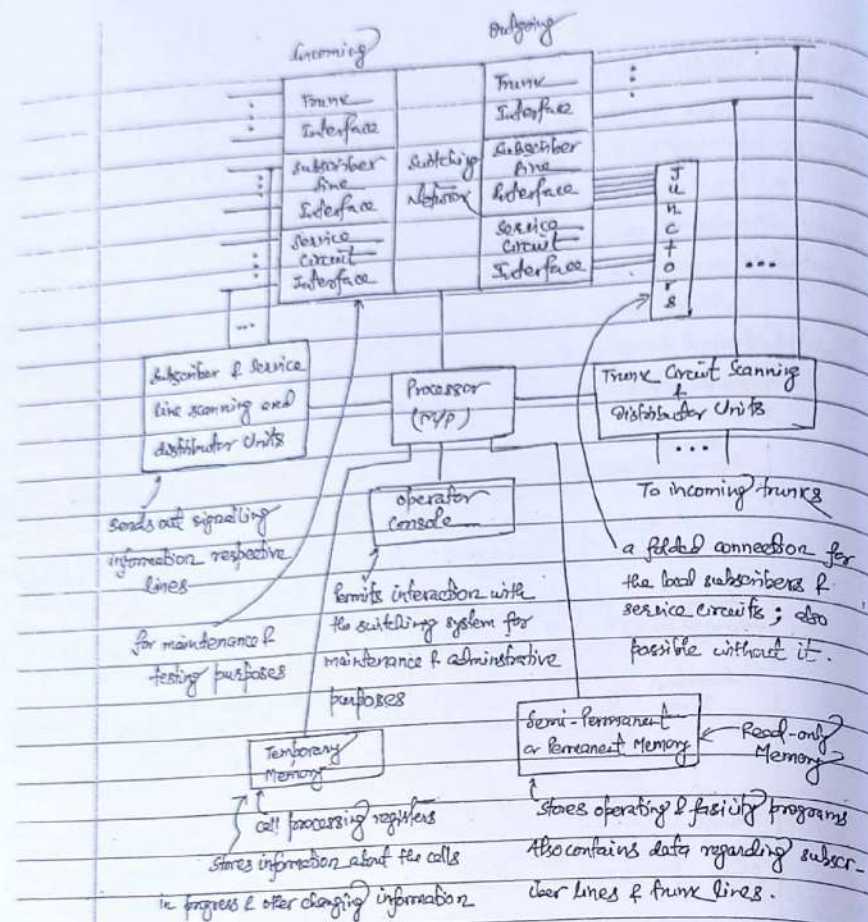 Incoming
Outgoing
Trunk
Interface
Subscriber
line
Interface
Service
Circuit
Interface
Switching
Network
Trunk
Interface
Subscriber
line
Interface
Service
Circuit
Interface
Junctors
Subscriber & Service
line scanning and
distributor Units
Processor
(M/P)
Trunk Circuit Scanning
&
Distributor Units
To incoming trunks
Operator
Console
sends out signalling
information respective
lines
Permits interaction with
the switching system for
maintenance & adminstrative
purposes
a folded connection for
the local subscribers &
service circuits ; also
possible without it.
for maintenance &
testing purposes
Temporary
Memory
Semi-Permanent
or Permanent Memory
Read-only
Memory
call processing registers
stores information about the calls
in progress & other changing information
Stores operating & fasicity programs
Also contains data regarding subscr-
iber lines & trunk lines.